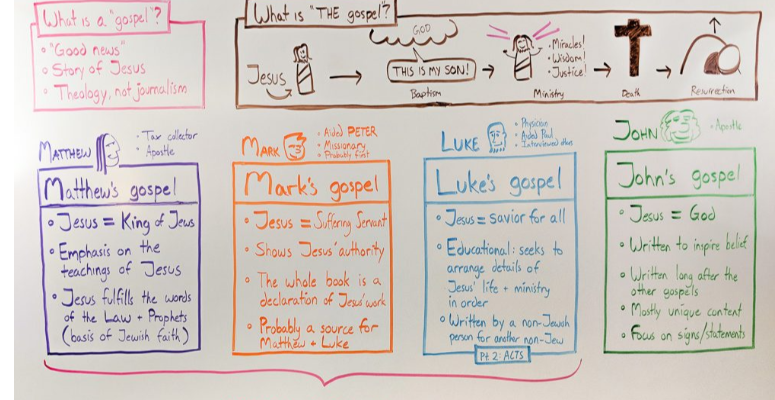 What is a "gospel"?
• "Good news"
• Story of Jesus
• Theology, not journalism
What is "THE gospel"?
Jesus
GOD
THIS IS MY SON!
Baptism
• Miracles!
• Wisdom!
• Justice!
Ministry
Death
Resurrection
MATTHEW
• Tax collector
• Apostle
Matthew's gospel
• Jesus = King of Jews
• Emphasis on the
teachings of Jesus
• Jesus fulfills the words
of the Law + Prophets
(basis of Jewish faith)
MARK
• Aided PETER
• Missionary
• Probably first
Mark's gospel
• Jesus = Suffering Servant
• Shows Jesus' authority
• The whole book is a
declaration of Jesus' work
• Probably a source for
Matthew + Luke
LUKE
• Physician
• Aided Paul
• Interviewed
Luke's gospel
• Jesus = savior for all
• Educational: seeks to
arrange details of
Jesus' life + ministry
in order
• Written by a non-Jewish
person for another non-Jew
Pt 2: ACTS
JOHN
• Apostle
John's gospel
• Jesus = God
• Written to inspire belief
• Written long after the
other gospels
• Mostly unique content
• Focus on signs/statements